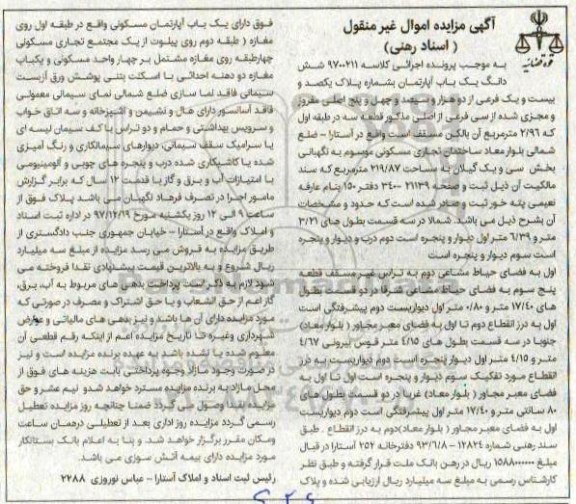 آگهی مزایده اموال غیر منقول
( اسناد رهنی )
قوه قضائیه
به موجب پرونده اجرائی کلاسه ۹۷۰۰۲۱۱ شش
دانگ یک باب آپارتمان بشماره پلاک یکصد و
بیست و یک فرعی از دو هزار و سیصد و چهل و پنج اصلی مفروز
و مجزی شده از سی فرعی از اصلی مذکور قطعه سه در طبقه اول
۲/۹۶ مترمربع آن بالکن مسقف است واقع در آستارا – ضلع
شمالی بلوار معاد ساختمان تجاری مسکونی موسوم به نگهبانی
بخش سی و یک گیلان به مساحت ۲۱۹/۸۷ مترمربع که سند
مالکیت آن ذیل ثبت و صفحه ۲۱۱۳۹ ۳۴۰۰ دفتر ۱۵۰ بنام عارفه
نعیمی پته خور ثبت و صادر شده است که حدود و مشخصات
آن بشرح ذیل می باشد. شمالا در سه قسمت بطول های ۳/۲۱
متر و ۶/۳۹ متر اول دیوار و پنجره است دوم درب و دیوار و پنجره
است سوم دیوار و پنجره است
اول به فضای حیاط مشاعی دوم به تراس غیر مسقف قطعه
پنج سوم به فضای حیاط مشاعی شرقا در دو قسمت بطول
های ۱۷/۴۰ متر و ۰/۸۰ متر اول دیواریست دوم پیشرفتگی است
اول به درز انقطاع دوم تا اول به فضای معبر مجاور ( بلوار معاد)
جنوبا در سه قسمت بطول های ۴/۱۵ متر قوس بیرونی ۴/۶۷
متر و ۴/۱۵ متر اول دیوار پنجره است دوم دیواریست به درز
انقطاع مورد تفکیک سوم دیوار و پنجره است اول تا اول به
فضای معبر مجاور ( بلوار معاد) غربا در دو قسمت بطول های
۸۰ سانتی متر و ۱۷/۴۰ متر اول پیشرفتگی است دوم دیواریست
اول به فضای معبر مجاور ( بلوار معاد)دوم به درز انقطاع . طبق
سند رهنی شماره ۱۲۸۲۴ – ۹۳/۶/۸ دفترخانه ۲۵۲ آستارا در قبال
مبلغ ۱۵۸۸۰۰۰۰۰۰ ریال در رهن بانک ملت قرار گرفته و طبق نظر
کارشناس رسمی به مبلغ سه میلیارد ریال ارزیابی شده و پلاک
فوق دارای یک باب آپارتمان مسکونی واقع در طبقه اول روی
مغازه ( طبقه دوم روی پیلوت از یک مجتمع تجاری مسکونی
چهارطبقه روی مغازه مشتمل بر چهار واحد مسکونی و یکباب
مغازه دو دهنه احداثی با اسکلت بتنی پوشش ورق آزبست
سیمانی فاقد نما سازی ضلع شمالی نمای سیمانی معمولی
فاقد آسانسور دارای هال و نشیمن و آشپزخانه و سه اتاق خواب
و سرویس بهداشتی و حمام و دو تراس با کف سیمان لیسه ای
یا سرامیک سقف سیمانی، دیوارهای سیمانکاری و رنگ آمیزی
شده یا کاشیکاری شده درب و پنجره های چوبی و آلومینیومی
با امتیازات آب و برق و گاز با قدمت ۱۲ سال که برابر گزارش
مامور اجرا در تصرف فرهاد نگهبان می باشد پلاک فوق از
ساعت ۹ الی ۱۲ روز یکشنبه مورخ ۹۷/۱۲/۱۹ در اداره ثبت اسناد
و املاک واقع در آستارا – خیابان جمهوری جنب دادگستری از
طریق مزایده به فروش می رسد مزایده از مبلغ سه میلیارد
ریال شروع و به بالاترین قیمت پیشنهادی نقدا فروخته می
شود لازم به ذکر است پرداخت بدهی های مربوط به آب، برق،
گاز اعم از حق انشعاب و یا حق اشتراک و مصرف در صورتی که
مورد مزایده دارای آن ها باشد و نیز بدهی های مالیاتی و عوارض
شهرداری و غیره تا تاریخ مزایده اعم از اینکه رقم قطعی آن
معلوم شده یا نشده باشد به عهده برنده مزایده است و نیز
در صورت وجود مازاد وجوه پرداختی بابت هزینه های فوق از
محل مازاد به برنده مزایده مسترد خواهد شد و نیم عشر و حق
مزایده نقدا وصول می گردد ضمنا چنانچه روز مزایده تعطیل
رسمی گردد مزایده روز اداری بعد از تعطیلی درهمان ساعت
ومکان مقرر برگزار خواهد شد. و بنا به اعلام بانک بستانکار
مورد مزایده دارای بیمه آتش سوزی می باشد.
رئیس ثبت اسناد و املاک آستارا – عباس نوروزی ۲۲۸۸